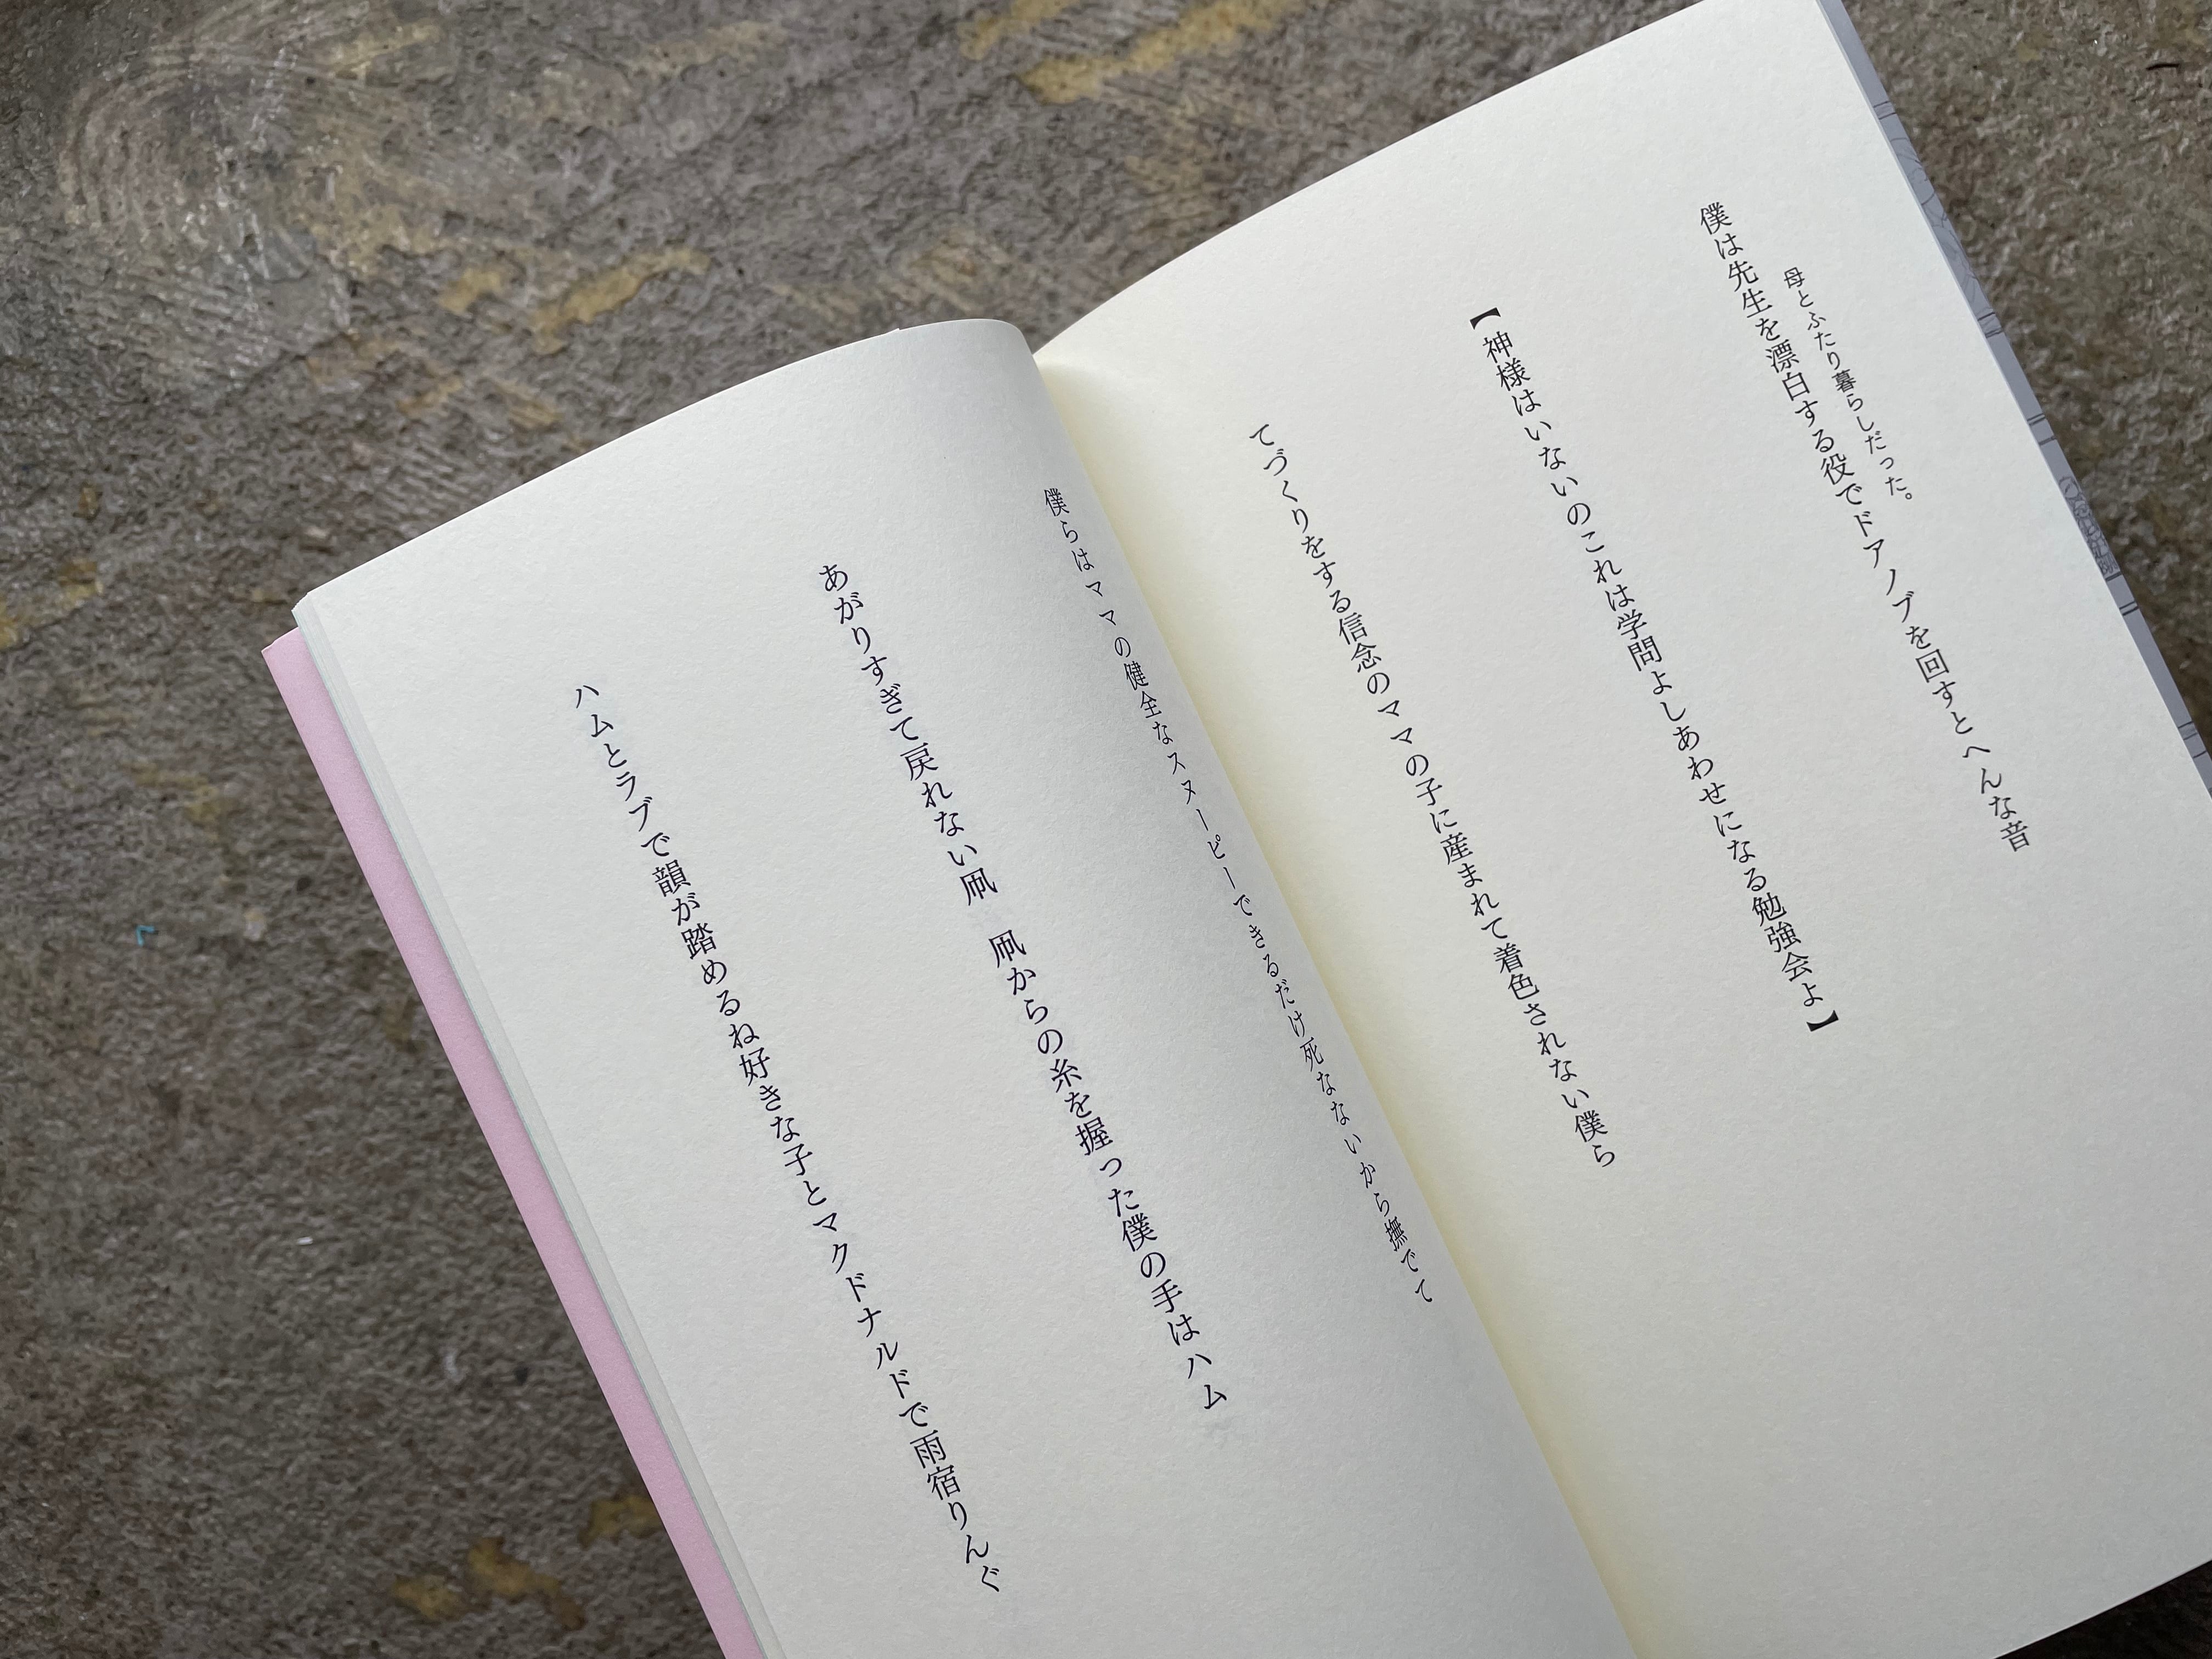 母とふたり暮らしだった。
僕は先生を漂白する役でドアノブを回すとへんな音
【神様はいないのこれは学問よしあわせになる勉強会よ】
てづくりをする信念のママの子に産まれて着色されない僕ら
僕らはママの健全なスヌーピーできるだけ死なないから撫でて
あがりすぎて戻れない凧　凧からの糸を握った僕の手はハム
ハムとラブで韻が踏めるね好きな子とマクドナルドで雨宿りんぐ